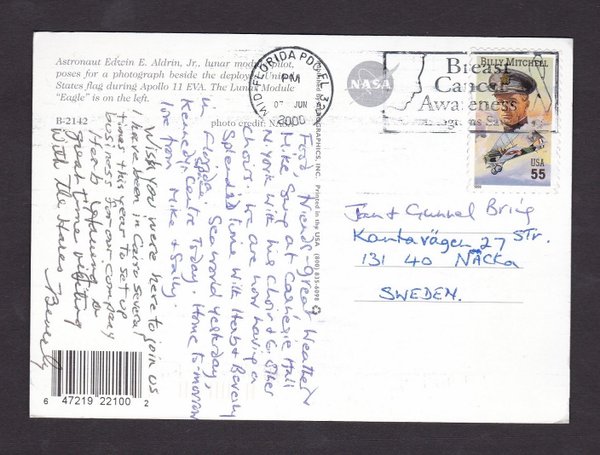 Astronaut Edwin E. Aldrin, Jr., lunar module pilot,
poses for a photograph beside the deployed United
States flag during Apollo 11 EVA. The Lunar Module
"Eagle" is on the left.
B-2142 photo credit: NASA
NASA
MID-FLORIDA PDC FL 327
PM
07 JUN
2000
Breast
Cancer
Awareness
BILLY MITCHELL
USA
55
GRAPHICS, INC. Printed in the USA (800) 835-6098
Food Friends - great Weather
Mike Sung at Carnegie Hall
N. York With his Choir & 6 other
Choirs. We are now having a
Splendid time With Herb & Beverly
in Florida. Seaworld yesterday,
Kennedy Centre Today. Home tomorrow
love from Mike & Sally.
Wish you were here to join us
I have been in Cairo several
times this year to set up
business for our company
Herb
great time visiting
With the
Beverly
Jan & Gunnel Bring
Kantavägen 27 Str.
131 40 NACKA
SWEDEN.
6 47219 22100 2